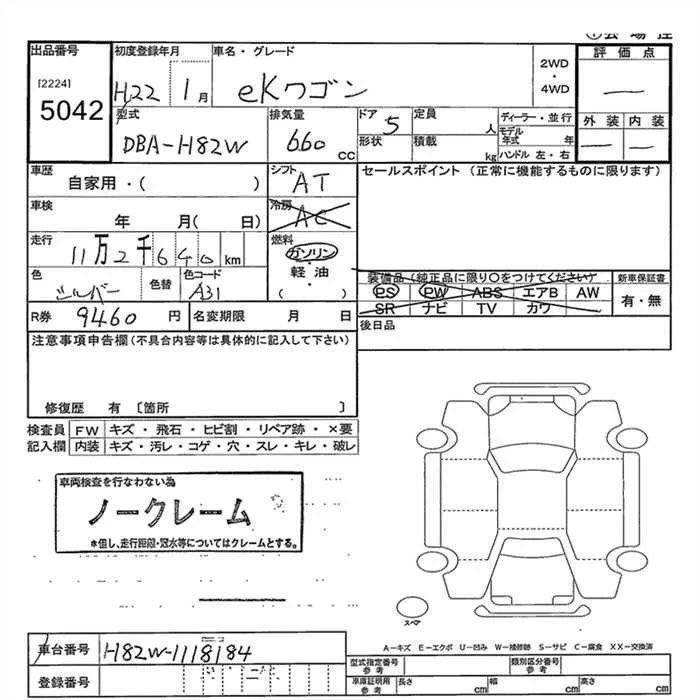 出品番号
[2224]
5042
初度登録年月
H22 1月
車名・グレード
eKワゴン
2WD
・
4WD
評価点
—
外装 内装
— —
型式
DBA-H82W
排気量
660
CC
ドア 5
形状
定員
人
積載
kg
ディーラー・並行
モデル
年式 年
ハンドル 左・右
車歴
自家用・( )
シフト
AT
セールスポイント (正常に機能するものに限ります)
車検
年 月( 日)
冷房
AC
走行
11万2千640km
燃料
ガソリン
・
軽油
・
( )
色
シルバー
色替
色コード
A31
装備品(純正品に限り○をつけてください)
PS PW ABS エアB AW
SR ナビ TV カワ
新車保証書
有・無
R券 9460 円
名変期限 月 日
後日品
注意事項申告欄(不具合内容等は具体的に記入して下さい)
修復歴 有 〔箇所 〕
検査員
記入欄
FW キズ・飛石・ヒビ割・リペア跡・×要
内装 キズ・汚レ・コゲ・穴・スレ・キレ・破レ
車両検査を行なわない為
ノークレーム
*但し、走行距離・冠水等についてはクレームとする。
スペア
A-キズ E-エクボ U-凹み W-補修跡 S-サビ C-腐食 XX-交換済
車台番号 H82W-1118184
登録番号
型式指定番号
参考
類別区分番号
参考
車庫証明用
参考
長さ cm 幅 cm 高さ cm